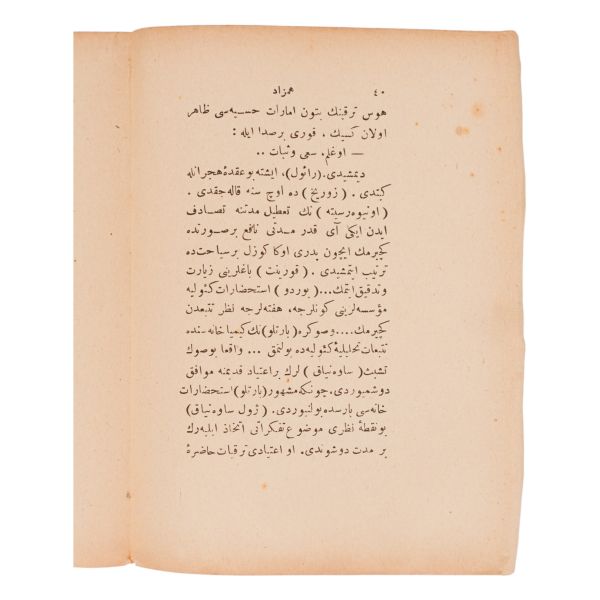 ٤٠ همزاد
هوس ترقینك بتون امارات حسیه‌سی ظاهر
اولان كسیك . قوری برصدا ایله :
— اوغلم. سعی و ثبات ..
دیمشیدی. (رائول) ، ایشته بو عقدهٔ هجرانله
كیتدی . ( زوریخ ) ده اوچ سنه قاله‌جقدی .
( اونیوه‌رسیته ) نك تعطیل مدتنه تصادف
ایدن ایكی آی قدر مدتی نافع برصورتده
كچیرمك ایچون پدری اوكا كوزل برسیاحت‌ده
ترتیب ایتمشیدی . ( قورینت ) باغلرینی زیارت
و تدقیق ایتمك... ( بوردو ) استحضارات كئولیه
مؤسسه‌لرینی كونلرجه ، هفته‌لرجه نظر تتبعدن
كچیرمك.... وصوكره ( بارتلو) نك كیمیاخانه‌سنده
تتبعات تحلیلیهٔ كئولیه‌ده بولنمق ... واقعا بو صوك
تشبث ( ساوه‌نیاق ) لرك بر اعتیاد قدیمنه موافق
دوشمیوردی. چونكه مشهور (بارتلو) استحضارات
خانه‌سی پارسده بولنیوردی. ( ژول ساوه‌نیاق)
بو نقطهٔ نظری موضوع تفكراتی اتخاذ ایلیه‌رك
بر مدت دوشوندی. او اعتیادی ترقیات حاضرهٔ